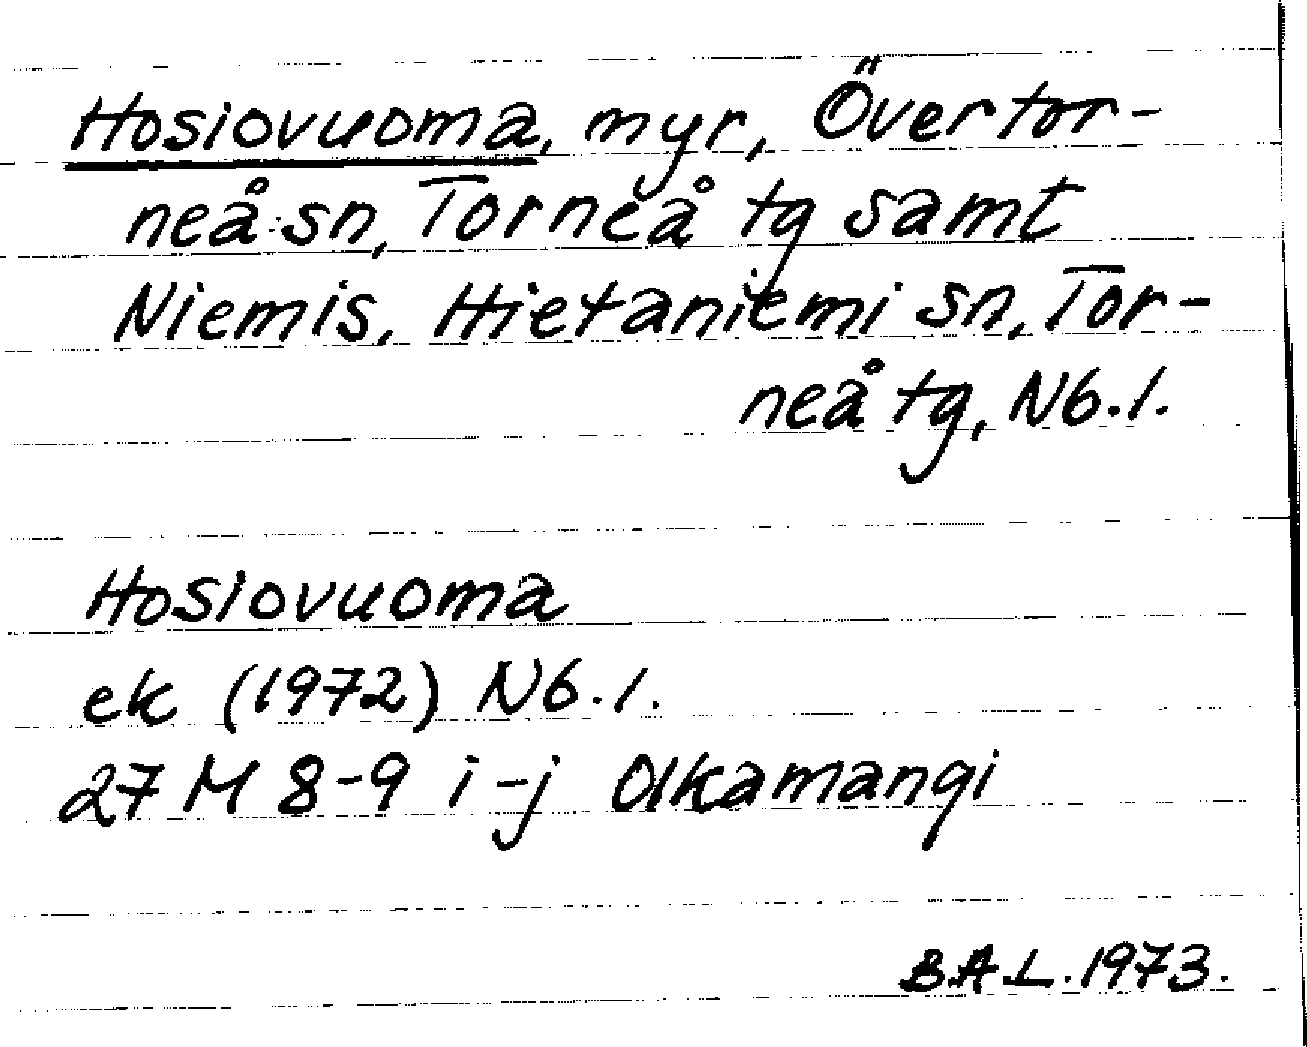 Hosiovuoma, myr, Övertor-
neå sn, Torneå tg samt
Niemis, Hietaniemi sn, Tor-
neå tg, Nb.l.
Hosiovuoma
ek (1972) Nb.l.
27 M 8-9 i-j Olkamangi
B.A.L. 1973.